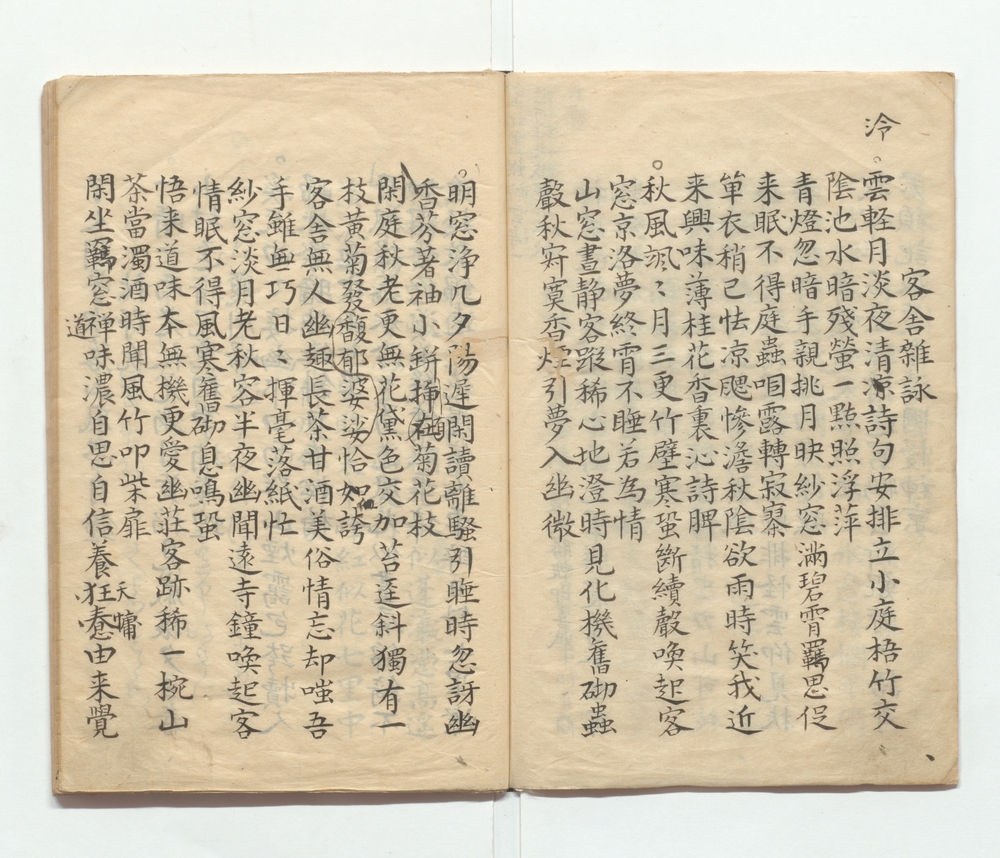 客舎雜詠
冷
雲軽月淡夜清凉詩句安排立小庭梧竹交
陰池水暗残螢一點照浮萍
青燈忽暗手親挑月映紗窓滿碧霄羈思促
来眠不得庭蟲咱露轉寂寥
單衣稍已怯凉颸惨澹秋陰欲雨時笑我近
来興味薄桂花香裏沁詩脾
秋風颯〻月三更竹壁寒蛩斷續聲喚起客
窓京洛夢終霄不睡若為情
山窓晝静客蹤稀心地澄時見化機舊砌蟲
聲秋寂寞香煙引夢入幽微
明窓浄几夕陽遲閑讀離騒引睡時忽訝幽
香芬著袖小鉼挿在菊花枝
閑庭秋老更無花黛色交加苔逕斜獨有一
枝黄菊發馥郁婆娑恰如誇
客舎無人幽趣長茶甘酒美俗情忘却嗤吾
手雖無巧日〻揮毫落紙忙
紗窓淡月老秋容半夜幽聞遠寺鐘喚起客
情眠不得風寒舊砌息鳴蛩
悟来道味本無機更愛幽荘客跡稀一椀山
茶當濁酒時聞風竹叩柴扉
閑坐羈窓禅味濃自思自信養狂惷由来覺
道
天慵